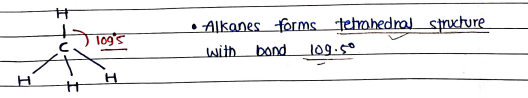 H
C
109.5
H
H
H
• Alkanes forms tetrahedral structure
with bond 109.5°